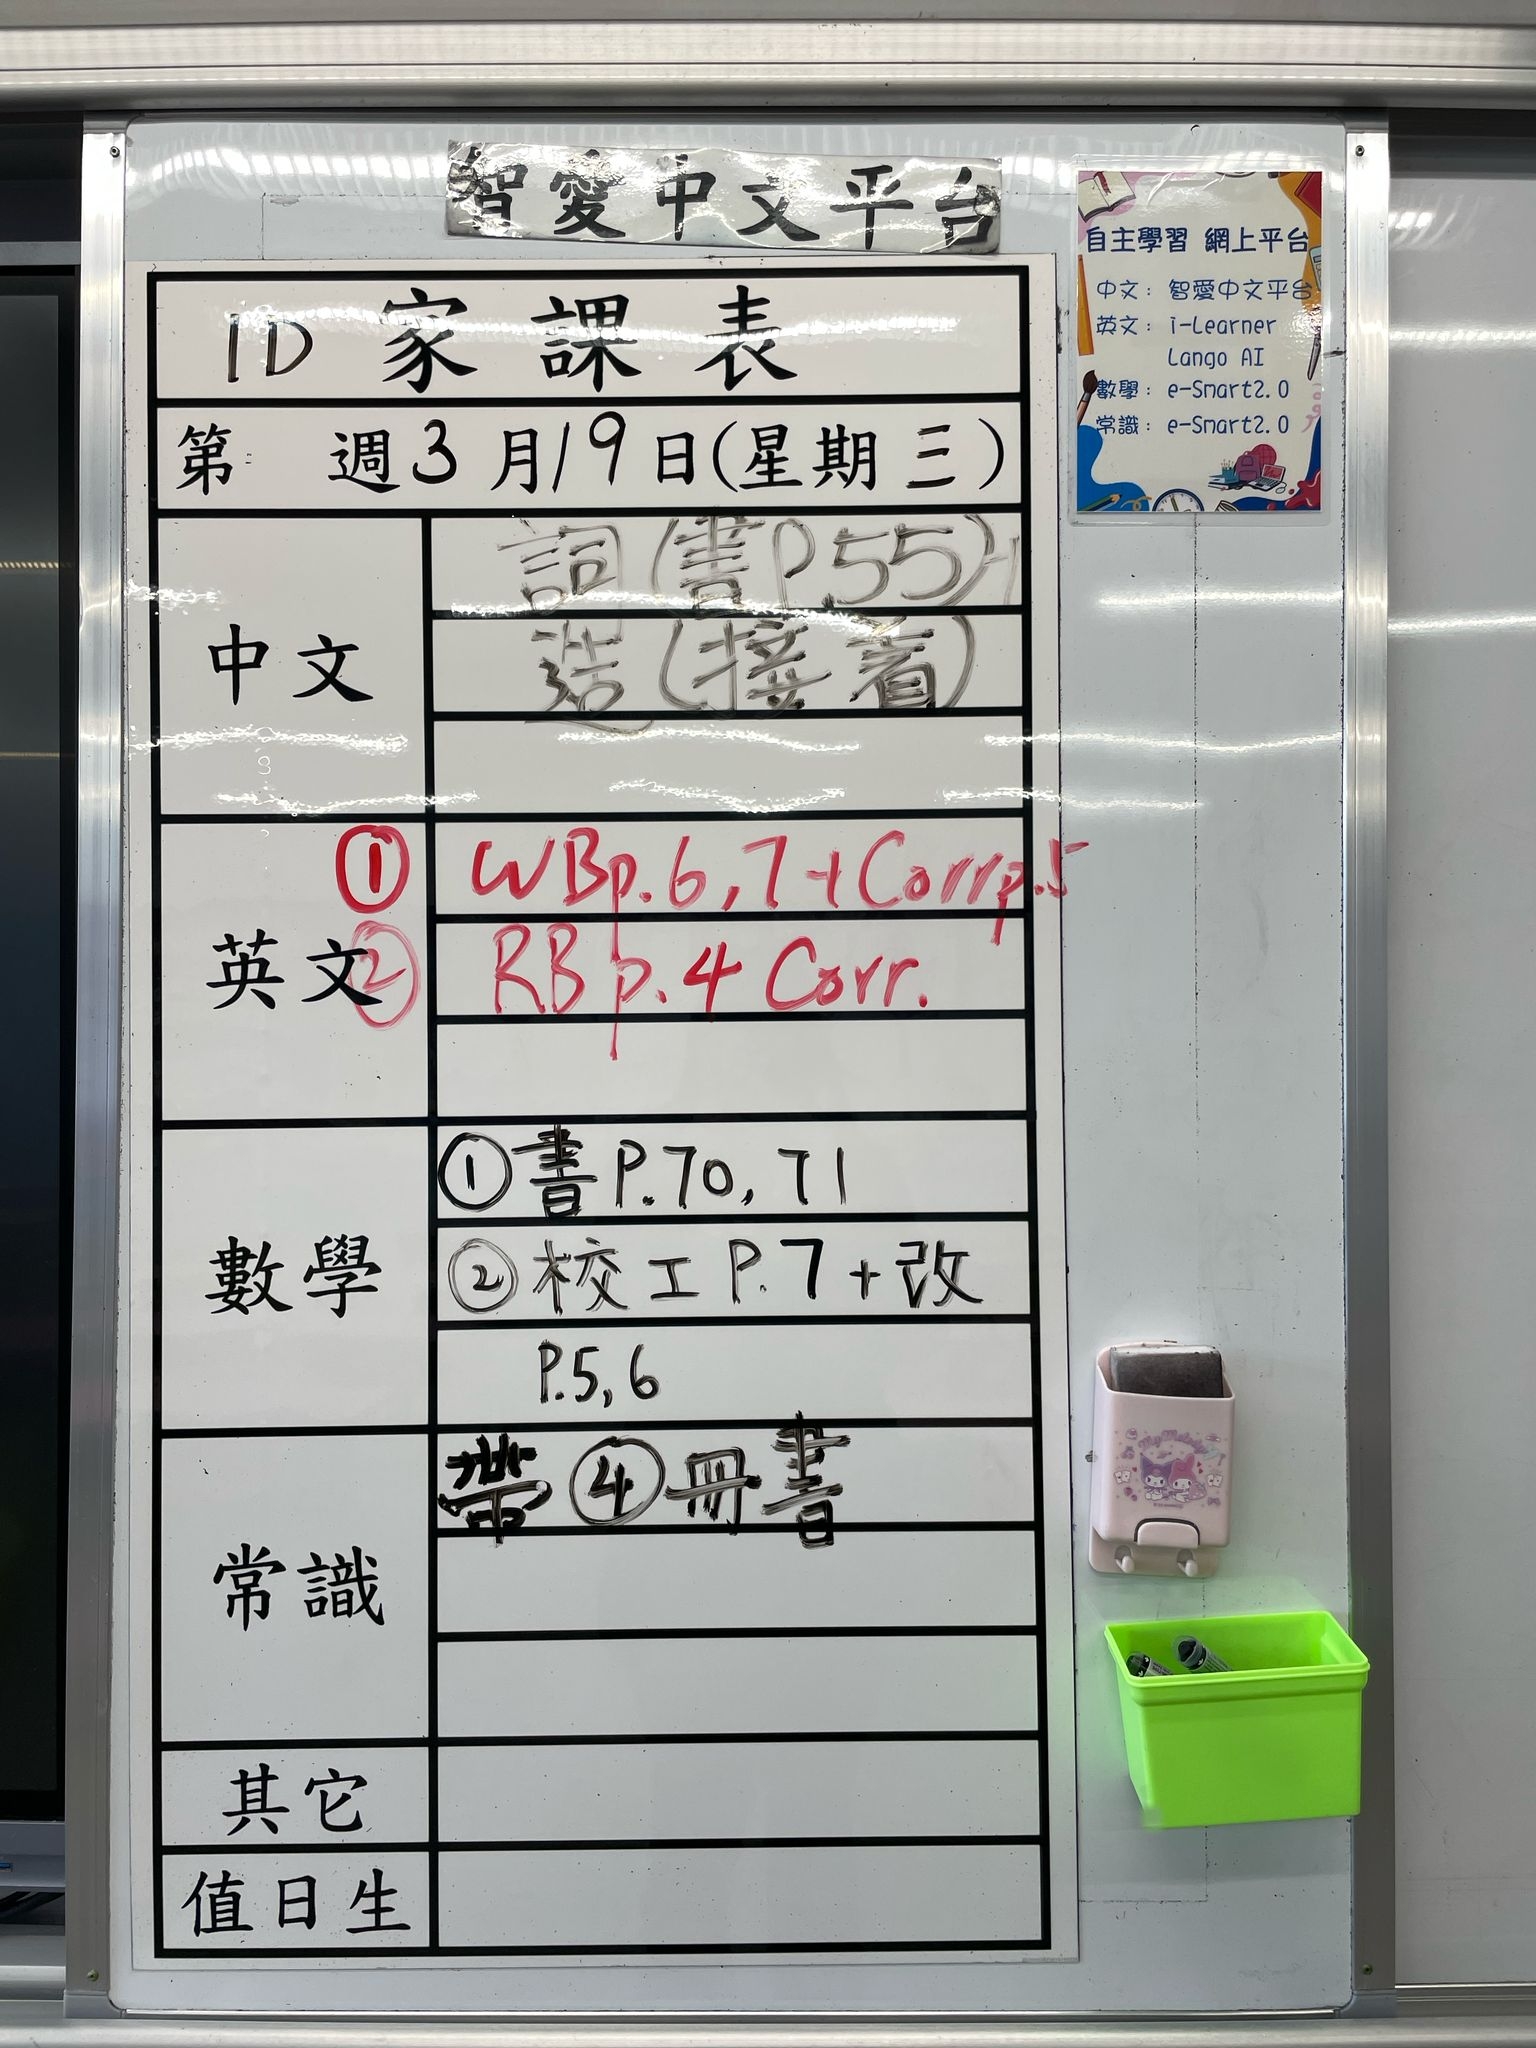 智愛中文平台
1D 家課表
第 週 3月19日(星期三)
中文
詞(書P.55)
造(接着)
英文
① WBp.6,7+Corrp.5
② RBp.4 Corr.
數學
①書P.70,71
②校工P.7+改
P.5,6
常識
帶④冊書
其它
值日生
自主學習 網上平台
中文：智愛中文平台
英文：i-Learner
Lango AI
數學：e-Smart2.0
常識：e-Smart2.0
My Melody